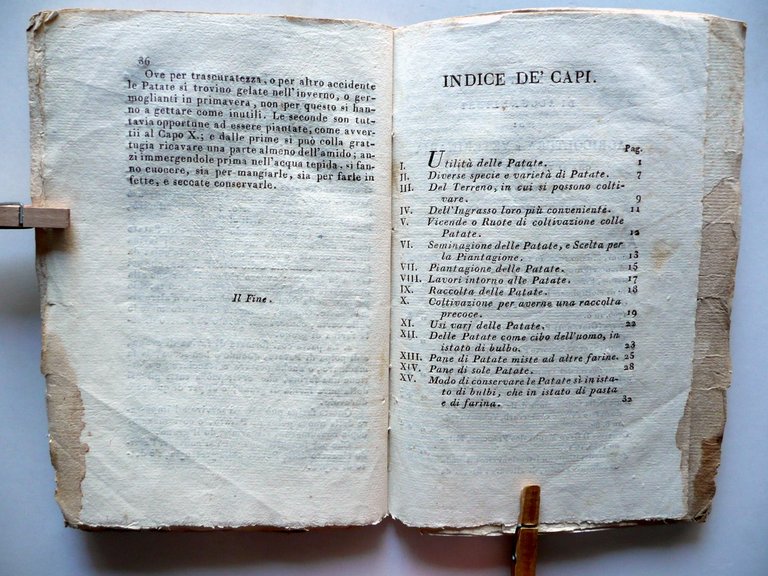 86
Ove per trascuratezza, o per altro accidente
le Patate si trovino gelate nell'inverno, o ger-
moglianti in primavera, non per questo si han-
no a gettare come inutili. Le seconde son tut-
tavia opportune ad essere piantate, come avver-
tii al Capo X.; e dalle prime si può colla grat-
tugia ricavare una parte almeno dell'amido; an-
zi immergendole prima nell'acqua tepida, si fan-
no cuocere, sia per mangiarle, sia per farle in
fette, e seccate conservarle.
Il Fine.
INDICE DE' CAPI.
Pag.
I. Utilità delle Patate. 1
II. Diverse specie e varietà di Patate. 7
III. Del Terreno, in cui si possono colti-
vare. 9
IV. Dell'Ingrasso loro più conveniente. 11
V. Vicende o Ruote di coltivazione colle
Patate. 12
VI. Seminagione delle Patate, e Scelta per
la Piantagione. 13
VII. Piantagione delle Patate. 15
VIII. Lavori intorno alle Patate. 17
IX. Raccolta delle Patate. 18
X. Coltivazione per averne una raccolta
precoce. 19
XI. Usi varj delle Patate. 22
XII. Delle Patate come cibo dell'uomo, in
istato di bulbo. 23
XIII. Pane di Patate miste ad altre farine. 25
XIV. Pane di sole Patate. 28
XV. Modo di conservare le Patate sì in ista-
to di bulbi, che in istato di pasta
e di farina. 32